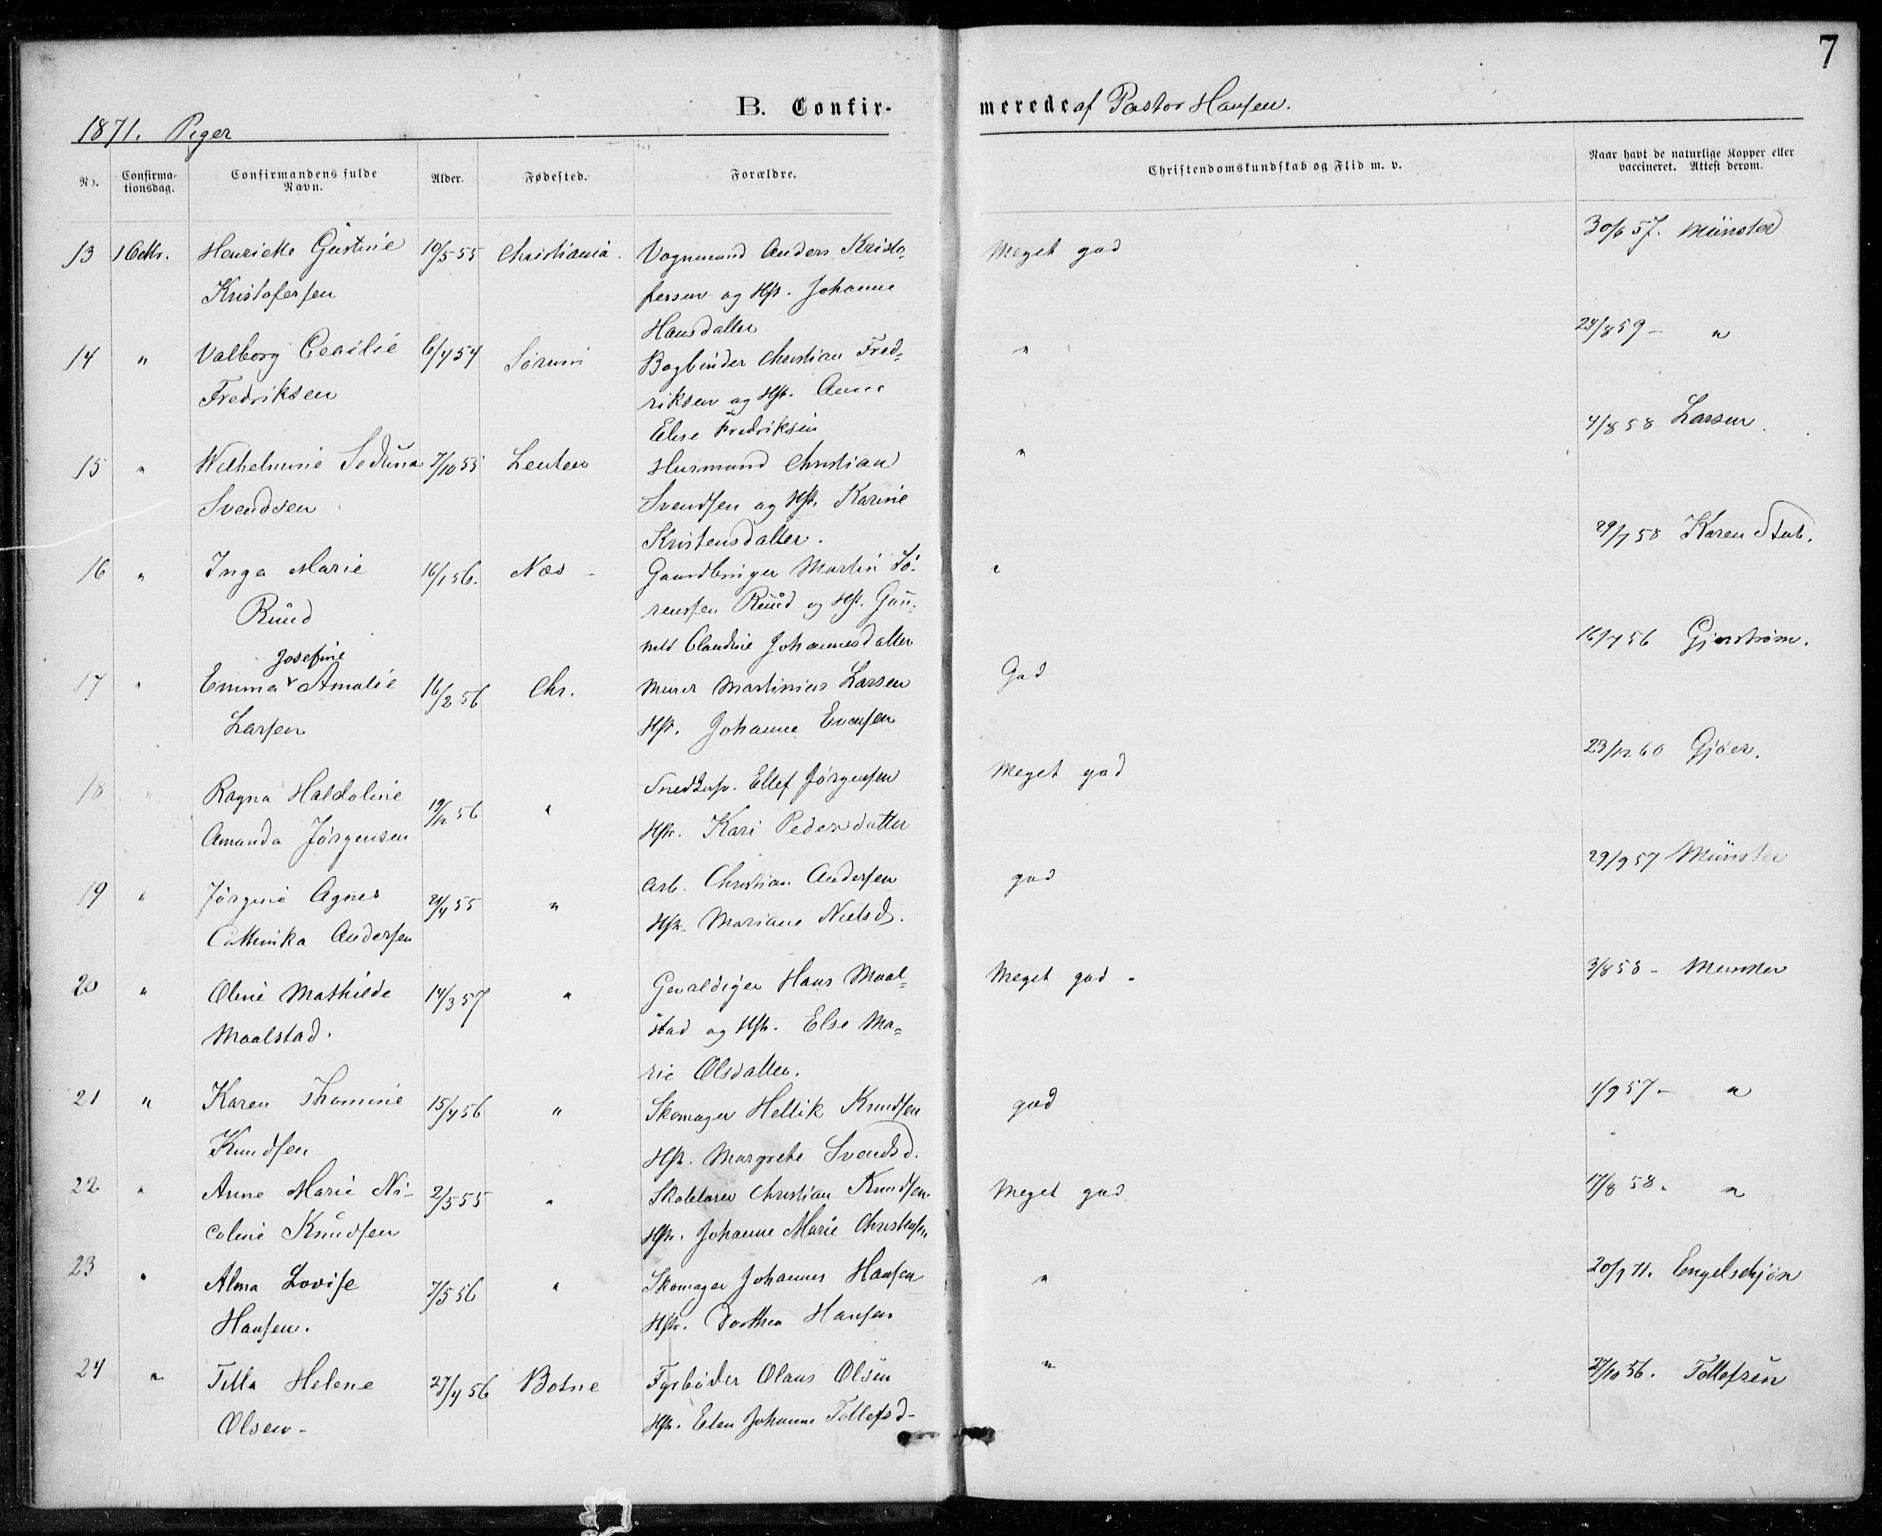 7
B. Confir-
merede af Pastor Hansen.
1871. Piger
No.
Confirma-
tionsdag.
Confirmandens fulde
Navn.
Alder.
Fødested.
Forældre.
Christendomskundskab og Flid m. v.
Naar havt de naturlige Kopper eller
vaccineret. Attest derom.
13 Henriette Gustine 10/5 55 Christiania. Vognmand Anders Kristo- Meget god 30/6 57. Münster
Kristofersen fersen og Hst. Johanne
Hansdatter
14 " Valborg Cecilie 6/4 54 Sørum Bogbinder Christian Fred- " 24/8 59 - "
Fredriksen riksen og Hst. Anne
Else Fredriksen
15 " Wilhelmine Seduna 7/10 55 Leuten Husmand Christian " 4/8 58 Larsen
Svendsen Svendsen og Hst. Karine
Kristensdatter.
16 " Inga Marie 16/1 56. Næs - Martin Sø- " 29/7 58 Karen Stub.
Ruud rensen Ruud og Hst. Gun-
nild Claudine Johannesdatter
Josefine
17 " Emma Amalie 16/2 56 Chr. Murer Martinius Larsen God 16/7 56
Larsen Hst. Johanne Evensen
18 " Ragna Haldoline 19/12 56 " Ellef Jørgensen Meget god 23/12 60 Gjøer.
Amanda Jørgensen Hst. Kari Pedersdatter
19 " Jørgine Agnes 55 " Arb. Christian Andersen god 29/9 57 Münster
Cathinka Andersen Hst. Mariane Nielsd.
20 " Oline Mathilde 14/3 57 " Gevaldiger Hans Maal- Meget god - 3/8 58 - Münster
Maalstad. stad og Hst. Else Ma-
rie Olsdatter.
21 " Karen Thomine 15/4 56 " Skomager Hellik Knudsen god 1/9 57 - "
Knudsen Hst. Margrete Svendsd.
22 " Anne Marie Ni- 2/5 55 " Christian Knudsen Meget god 17/8 58. "
coline Knudsen Hst. Johanne Marie Christensen
23 " Alma Lovise 7/5 56 " Skomager Johannes Hansen " 20/9 71. Engelschjøn
Hansen. Hst. Dorthea Hansen
24 " Tilla Helene 27/4 56 Botne Fyrbøder Olaus Olsen " 27/10 56. Tollefsen
Olsen - Hst. Elen Johanne Tollefsd-